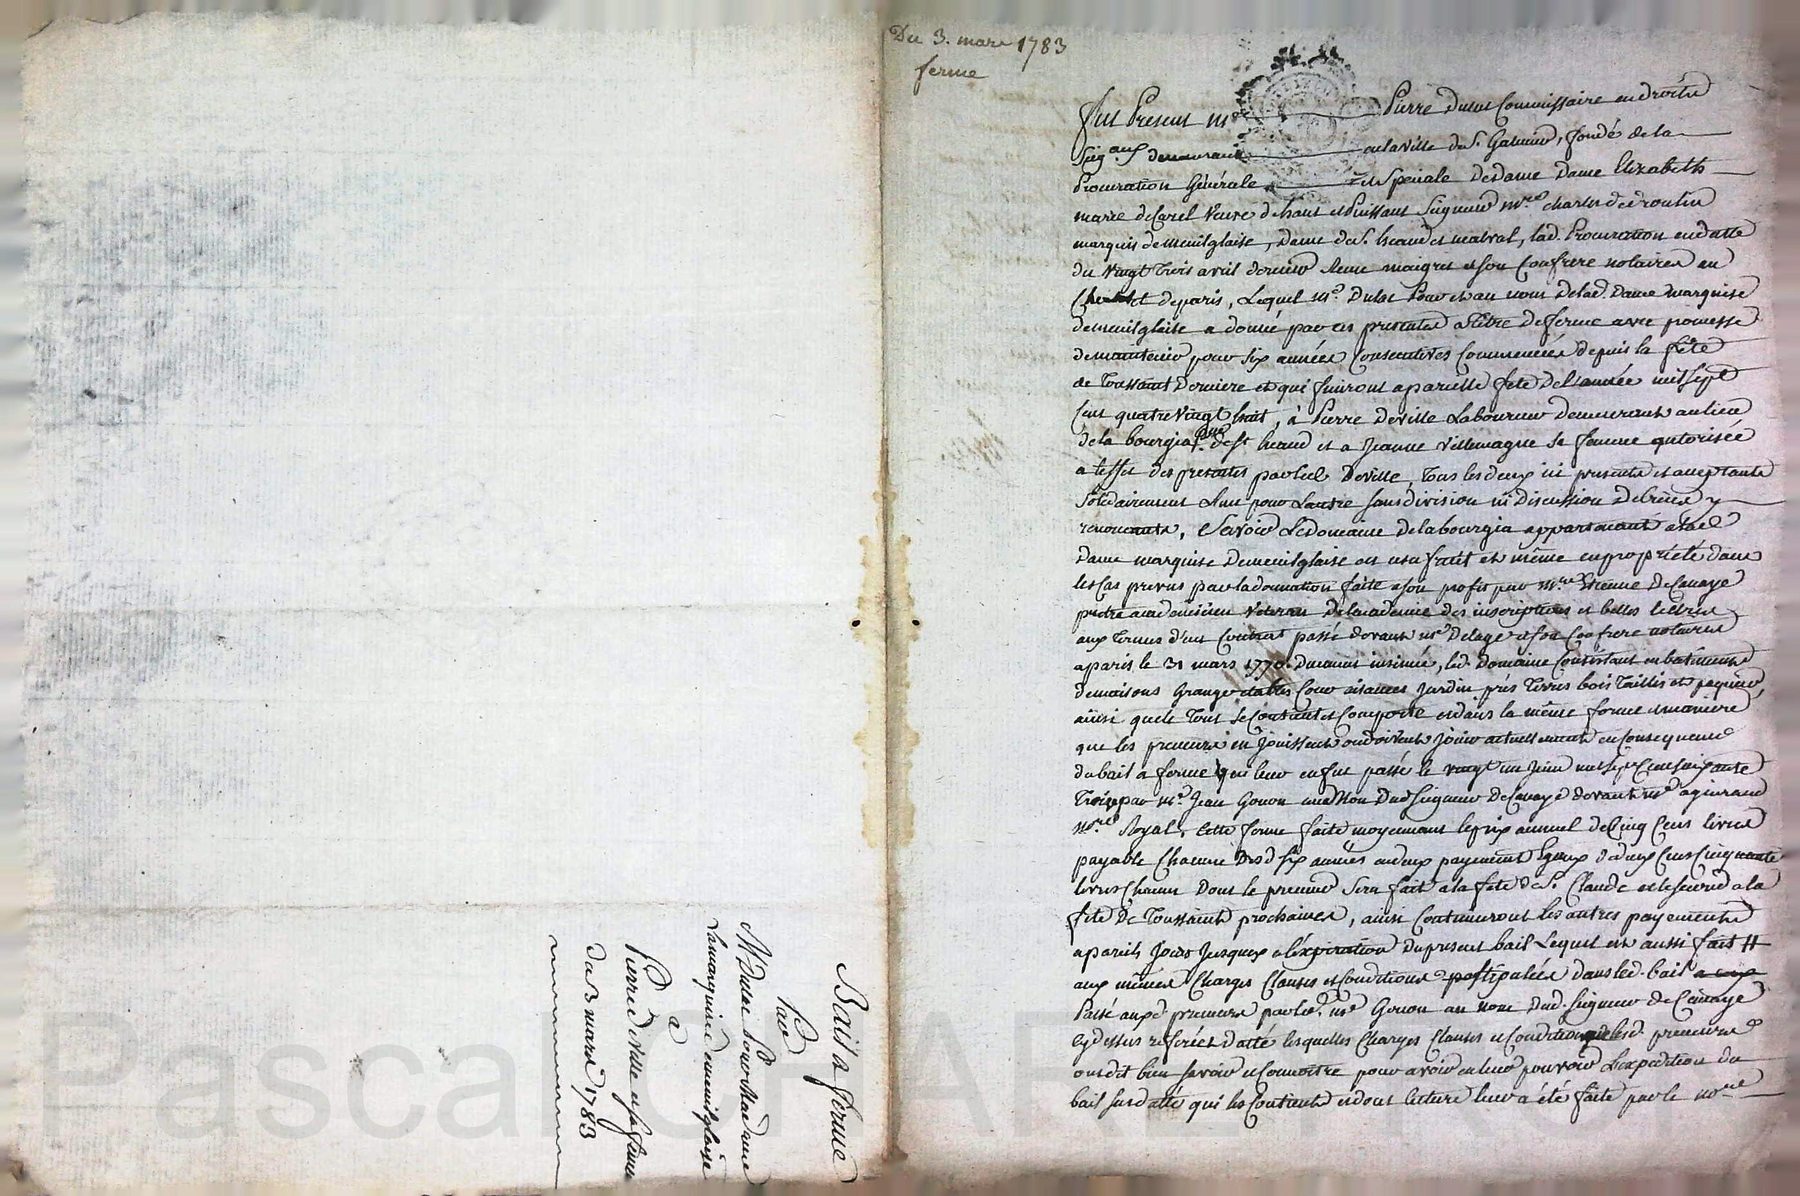 Bail à ferme
Par
Mr Dulac pour Madame
La marquise de menilglaise
à
Pierre deville et sa femme
du 3 mars 1783
Du 3. mars 1783
ferme
Fut Present mr Pierre Dulac Commissaire en droits
Seigaux demeurant en la ville de St Galmier, fondé de la
Procuration Générale et Speciale de dame Dame Elizabeth
marie de Carel Veuve de haut et Puissant Seigneur mre charles de droullin
marquis de menilglaise, Dame de St heand et malval, lad. Procuration en datte
du vingt Trois avril dernier Reçue maigret et son Confrere notaires au
Chatelet de paris, Lequel mr. Dulac Pour et au nom de lad. Dame marquise
de menilglaise a donné par ces presentes a titre de ferme avec promesse
de maintenir pour six années Consecutives Commencées depuis la fête
de Toussaint Derniere et qui finiront a pareille fete de l'année mil sept
Cent quatre vingt huit, à Pierre Deville Laboureur demeurant au lieu
de la bourgia psse de St heand et a Jeanne Villemagne sa femme autorisée
a l'effet des presentes par led Deville, Tous les deux ici presents et acceptants
Solidairement l'un pour Lautre sans division ni Discussion de biens y
renonceants, Scavoir Le domaine de la bourgia appartenant a lad
Dame marquise De menilglaise en usufruit et même en propriété dans
les Cas prevus par la donnation faite a son profit par mre Etienne De Canaye
pretre academicien Veteran De l'academie des inscriptions et belles lettres
aux Termes d'un Contrat passé devant mre Delage et son Confrere notaires
a paris le 31 mars 1770. Duement insinué, led. Domaine Consistant en batiments
de maisons Grange etables Cour aisances Jardin prés Terres bois Taillis et paquiers
ainsi que le Tout se Contient et Comporte et dans la même forme et maniere
que les preneurs en Jouissent ou doivent Jouir actuellement en Consequence
du bail a ferme qui leur en fut passé le vingt un Juin mil sept Cent soixante
Treize par mr. Jean Gonon au Nom Dud Seigneur De Canaye devant mre aguiraud
nore Royal, Cette ferme faite moyennant le prix annuel de Cinq Cens livres
payable Chacune Desd six années en deux payements Egaux de deux Cens Cinquante
livres Chacun Dont le premier Sera fait a la fete de St. Claude et le second a la
fete De Toussaint prochaines, ainsi Continueront les autres payements
a pareils Jours Jusques a l'expiration du present bail Lequel est aussi fait
aux mêmes Charges Clauses et Conditions Stipulées dans led. bail
Passé auxd. preneurs par led. mr Gonon au nom Dud. Seigneur de Canaye
cy dessus referé et datté lesquelles Charges Clauses et Conditions lesd. preneurs
ont dit bien scavoir et Connoitre pour avoir en leur pouvoir L'expedition du
bail susdatté qui les Contient et dont lecture leur a été faite par le nore